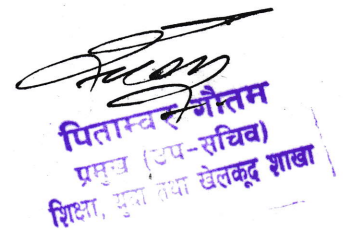 पिताम्बर गौतम
प्रमुख (उप-सचिव)
शिक्षा, युवा तथा खेलकूद शाखा